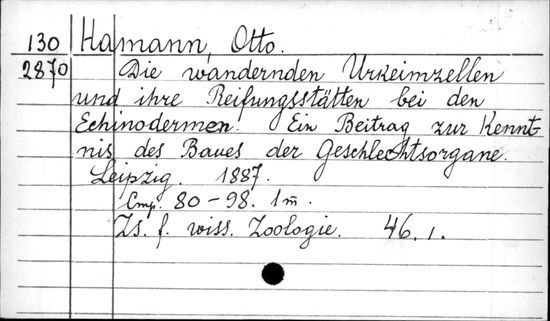 130 Hamann, Otto.
2870 Die wandernden Urkeimzellen
und ihre Reifungsstätten bei den
Echinodermen. Ein Beitrag zur Kennt-
nis des Baues der Geschlechtsorgane.
Leipzig. 1887.
Стр. 80-98. 1 т.
Zs. f. wiss. Zoologie. 46, 1.